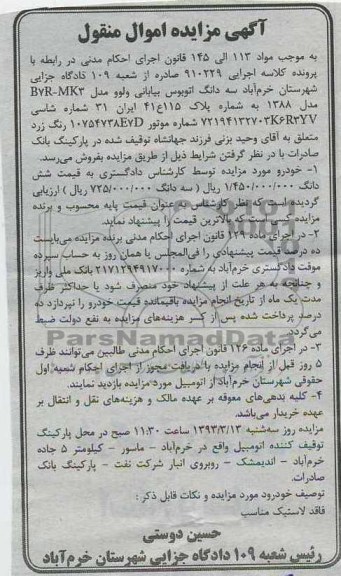 آگهی مزایده اموال منقول
به موجب مواد ۱۱۳ الی ۱۴۵ قانون اجرای احکام مدنی در رابطه با
پرونده کلاسه اجرایی ۹۱۰۲۲۹ صادره از شعبه ۱۰۹ دادگاه جزایی
شهرستان خرم‌آباد سه دانگ اتوبوس بیابانی ولوو مدل B۷R-MK۳
مدل ۱۳۸۸ به شماره پلاک ۱۱۵ع۴۱ ایران ۳۱ شماره شاسی
شماره موتور ۱۰۷۵۴۷۳۸E۷D رنگ زرد
متعلق به آقای وحید بزنی فرزند جهانشاه توقیف شده در پارکینگ بانک
صادرات با در نظر گرفتن شرایط ذیل از طریق مزایده بفروش می‌رسد.
۱- خودرو مورد مزایده توسط کارشناس دادگستری به قیمت شش
دانگ ۱/۴۵۰/۰۰۰/۰۰۰ ریال ( سه دانگ ۷۲۵/۰۰۰/۰۰۰ ریال ) ارزیابی
گردیده است که نظر کارشناس به عنوان قیمت پایه محسوب و برنده
مزایده کسی است که بالاترین قیمت را پیشنهاد نماید.
۲- در اجرای ماده ۱۲۹ قانون اجرای احکام مدنی برنده مزایده می‌بایست
ده درصد قیمت پیشنهادی را فی‌المجلس یا همان روز به حساب سپرده
موقت دادگستری خرم‌آباد به شماره ۲۱۷۱۲۹۴۹۱۷۰۰۰ بانک ملی واریز
و چنانچه به هر علت از پیشنهاد خود منصرف شود یا حداکثر ظرف
مدت یک ماه از تاریخ انجام مزایده باقیمانده قیمت خودرو را نپردازد ده
درصد پرداخت شده پس از کسر هزینه‌های مزایده به نفع دولت ضبط
می‌گردد.
ParsNamadData
۳- در اجرای ماده ۱۲۶ قانون اجرای احکام مدنی طالبین می‌توانند ظرف
۵ روز قبل از انجام مزایده با دریافت مجوز از اجرای احکام شعبه اول
حقوقی شهرستان خرم‌آباد از اتومبیل مورد مزایده بازدید نمایند.
۴- کلیه بدهی‌های معوقه بر عهده مالک و هزینه‌های نقل و انتقال بر
عهده خریدار می‌باشد.
مزایده روز سه‌شنبه ۱۳۹۳/۳/۱۳ ساعت ۱۱:۳۰ صبح در محل پارکینگ
توقیف کننده اتومبیل واقع در خرم‌آباد - ماسور - کیلومتر ۵ جاده
خرم‌آباد - اندیمشک - روبروی انبار شرکت نفت - پارکینگ بانک
صادرات.
توصیف خودرود مورد مزایده و نکات قابل ذکر :
فاقد لاستیک مناسب
حسین دوستی
رئیس شعبه ۱۰۹ دادگاه جزایی شهرستان خرم‌آباد